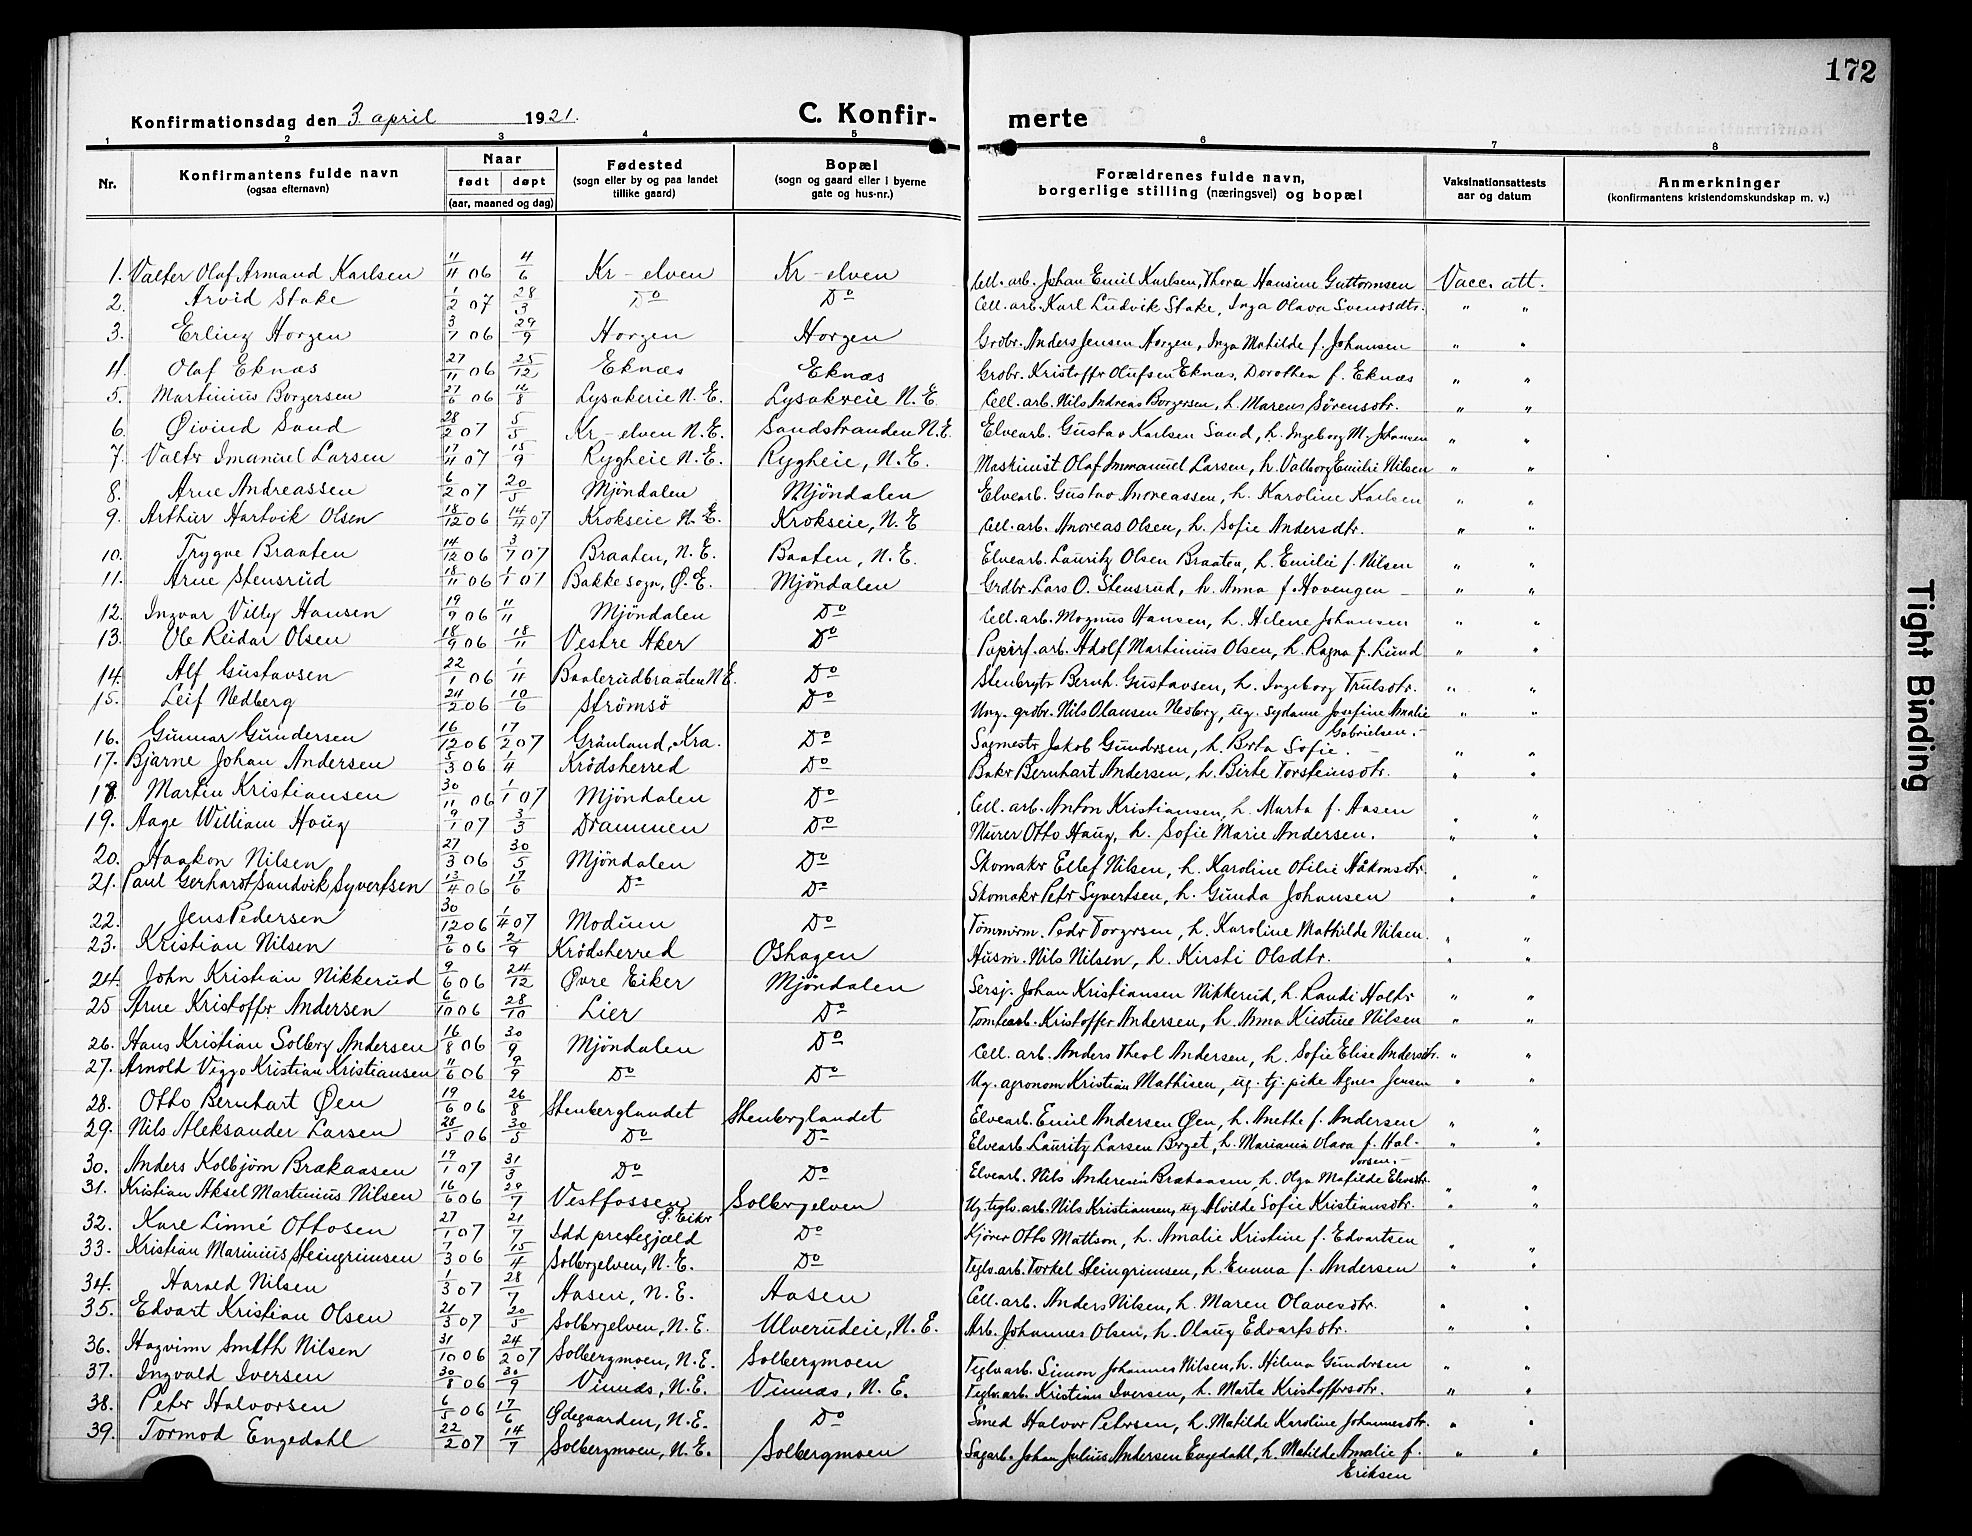 172
Konfirmationsdag den 3 april 1921.
C. Konfirmerte
1 2 3 4 5 6 7 8
Nr.
Konfirmantens fulde navn
(ogsaa efternavn)
Naar
født døpt
(aar, maaned og dag)
Fødested
(sogn eller by og paa landet
tillike gaard)
Bopæl
(sogn og gaard eller i byerne
gate og hus-nr.)
Forældrenes fulde navn,
borgerlige stilling (næringsvei) og bopæl
Vaksinationsattests
aar og datum
Anmerkninger
(konfirmantens kristendomskundskap m. v.)
1. Valter Olaf Armand Karlsen 11/11 06 4/6 Kr-elven Kr-elven Cell. arb. Johan Emil Karlsen, Thora Hansine Guttormsen Vacc. att.
2. Arvid Stake 1/2 07 28/3 Do Do Cell. arb. Karl Ludvik Stake, Inga Olava Svensdtr. " "
3. Erling Horgen 3/7 06 29/9 Horgen Horgen Grdbr. Anders Jensen Horgen, Inga Matilde f. Johansen " "
4. Olaf Eknæs 27/11 06 25/12 Eknæs Eknæs Grdbr. Kristoffr Olufsen Eknæs, Dorothea f. Eknæs " "
5. Martinius Borgersen 27/6 06 12/8 Lysakerie N. E. Lysakreie N. E. Cell. arb. Nils Andreas Borgersen, h. Maren Sørensdtr. " "
6. Øivind Sand 28/2 07 5/5 Kr-elven N. E. Sandstranden N. E. Elvearb. Gustav Karlsen Sand, h. Ingeborg M. Johansen " "
7. Valtr Imanuel Larsen 17/4 07 15/9 Rygheie N. E. Rygheie, N. E. Maskinist Olaf Immanuel Larsen, h. Valborg Emilie Nilsen " "
8. Arne Andreassen 6/2 07 20/5 Mjöndalen Mjöndalen Elvearb. Gustav Andreassen, h. Karoline Karlsen " "
9. Arthur Hartvik Olsen 18/12 06 14/4 07 Krokseie N. E. Krokseie, N. E Cell. arb. Andreas Olsen, h. Sofie Andersdtr. " "
10. Trygve Braaten 14/12 06 3/7 07 Braaten, N. E. Baaten, N. E. Elvearb. Lauritz Olsen Braaten, h. Emilie f. Nilsen " "
11. Arne Stensrud 18/11 06 1/1 07 Bakke sogn, Ø. E. Mjöndalen Grdbr. Lars O. Stensrud, h. Anna f. Hovengen " "
12. Ingvar Villy Hansen 19/9 06 11/11 Mjöndalen Do Cell. arb. Magnus Hansen, h. Helene Johansen " "
13. Ole Reidar Olsen 18/9 06 18/11 Vestre Aker Do Papirf. arb. Adolf Martinius Olsen, h. Ragna f. Lund " "
14. Alf Gustavsen 22/1 06 1/11 Baalerudbraaten N. E. Do Stenbrytr Bernh. Gustavsen, h. Ingeborg Trulsdtr. " "
15. Leif Nedberg 24/2 06 10/6 Strömsö Do Ung. grdbr. Nils Olausen Nedberg, ug. sydame Josefine Amalie Gabrielsen. " "
16. Gunnar Gundersen 16/12 06 17/2 07 Grönland, Kra. Do Sagmestr Jakob Gundersen, h. Berta Sofie. " "
17. Bjarne Johan Andersen 5/3 06 1/4 Krödsherred Do Bakr Bernhart Andersen, h. Birte Torsteinsdtr. " "
18. Martin Kristiansen 30/11 06 1/1 07 Mjöndalen Do Cell. arb. Anton Kristiansen, h. Marta f. Aasen " "
19. Aage William Haug 9/1 07 3/3 Drammen Do Murer Otto Haug, h. Sofie Marie Andersen. " "
20. Haakon Nilsen 27/3 06 30/5 Mjöndalen Do Skomakr Ellef Nilsen, h. Karoline Otilie Håkonsdtr. " "
21. Paul Gerhardt Sandvik Syvertsen 13/4 06 17/6 Do Do Skomakr Petr Syvertsen, h. Gunda Johansen " "
22. Jens Pedersen 30/12 06 1/4 07 Modum Do Tömmrm. Pedr Torgrsen, h. Karoline Mathilde Nilsen " "
23. Kristian Nilsen 9/6 06 2/9 Krödsherred Oshagen Husm. Nils Nilsen, h. Kirsti Olsdtr. " "
24. John Kristian Nikkerud 9/6 06 24/12 Øvre Eiker Mjöndalen Sersj. Johan Kristiansen Nikkerud, h. Randi Holtr " "
25 Arne Kristoffr Andersen 6/10 06 28/10 Lier Do Tomtearb. Kristoffer Andersen, h. Anna Kristine Nilsen " "
26. Hans Kristian Solberg Andersen 16/8 06 30/9 Mjöndalen Do Cell. arb. Anders Theol Andersen, h. Sofie Elise Andersdtr. " "
27. Arnold Viggo Kristian Kristiansen 11/6 06 9/9 Do Do Ug. agronom Kristian Mathisen, ug. tj. pike Agnes Jensen " "
28. Otto Bernhart Øen 19/6 06 26/8 Stenberglandet Stenberglandet Elvearb. Emil Andersen Øen, h. Anethe f. Andersen " "
29. Nils Aleksander Larsen 25/5 06 30/5 Do Do Elvearb. Lauritz Larsen Berget, h. Mariania Olava f. Halvorsen. " "
30. Anders Kolbjørn Brækaasen 19/1 07 31/3 Do Do Elvearb. Nils Andersen Brækaasen, h. Olga Matilde Elevsdtr. " "
31. Kristian Aksel Martinius Nilsen 16/6 06 29/7 Vestfossen Ø. Eikr Solbergelven Ug. teglv. arb. Nils Kristiansen, ug. Alvilde Sofie Kristiansdtr. " "
32. Kare Linné Ottosen 27/1 07 21/7 Idd prestegjæld Do Kjörer Otto Mattson, h. Amalie Kristine f. Edvartsen " "
33. Kristian Marinius Steingrimsen 7/3 06 15/4 Solbergelven, N. E. Do Teglv. arb. Torkel Steingrimsen, h. Emma f. Andersen " "
34. Harald Nilsen 1/3 07 28/7 Aasen, N. E. Aasen Cell. arb. Anders Nilsen, h. Maren Olavesdtr. " "
35. Edvart Kristian Olsen 21/3 07 20/5 Solbergelven, N. E. Ulverudeie, N. E. Arb. Johannes Olsen, h. Olaug Edvartsdtr. " "
36. Hagvinn Smith Nilsen 31/10 06 24/2 07 Solbergmoen, N. E. Solbergmoen Teglv. arb. Simon Johannes Nilsen, h. Hilma Gundersen " "
37. Ingvald Iversen 30/8 06 30/9 Vinnæs, N. E. Vinnæs, N. E. Teglv. arb. Kristian Iversen, h. Marta Kristoffersdtr. " "
38. Petr Halvorsen 6/5 06 17/6 Ødegaarden, N. E. Do Smed Halvor Petersen, h. Matilde Karoline Johannesdtr. " "
39. Tormod Engedahl 22/2 07 14/7 Solbergmoen, N. E. Solbergmoen Sagarb. Johan Julius Andersen Engedahl, h. Matilde Amalie f. Eriksen " "
Tight Binding